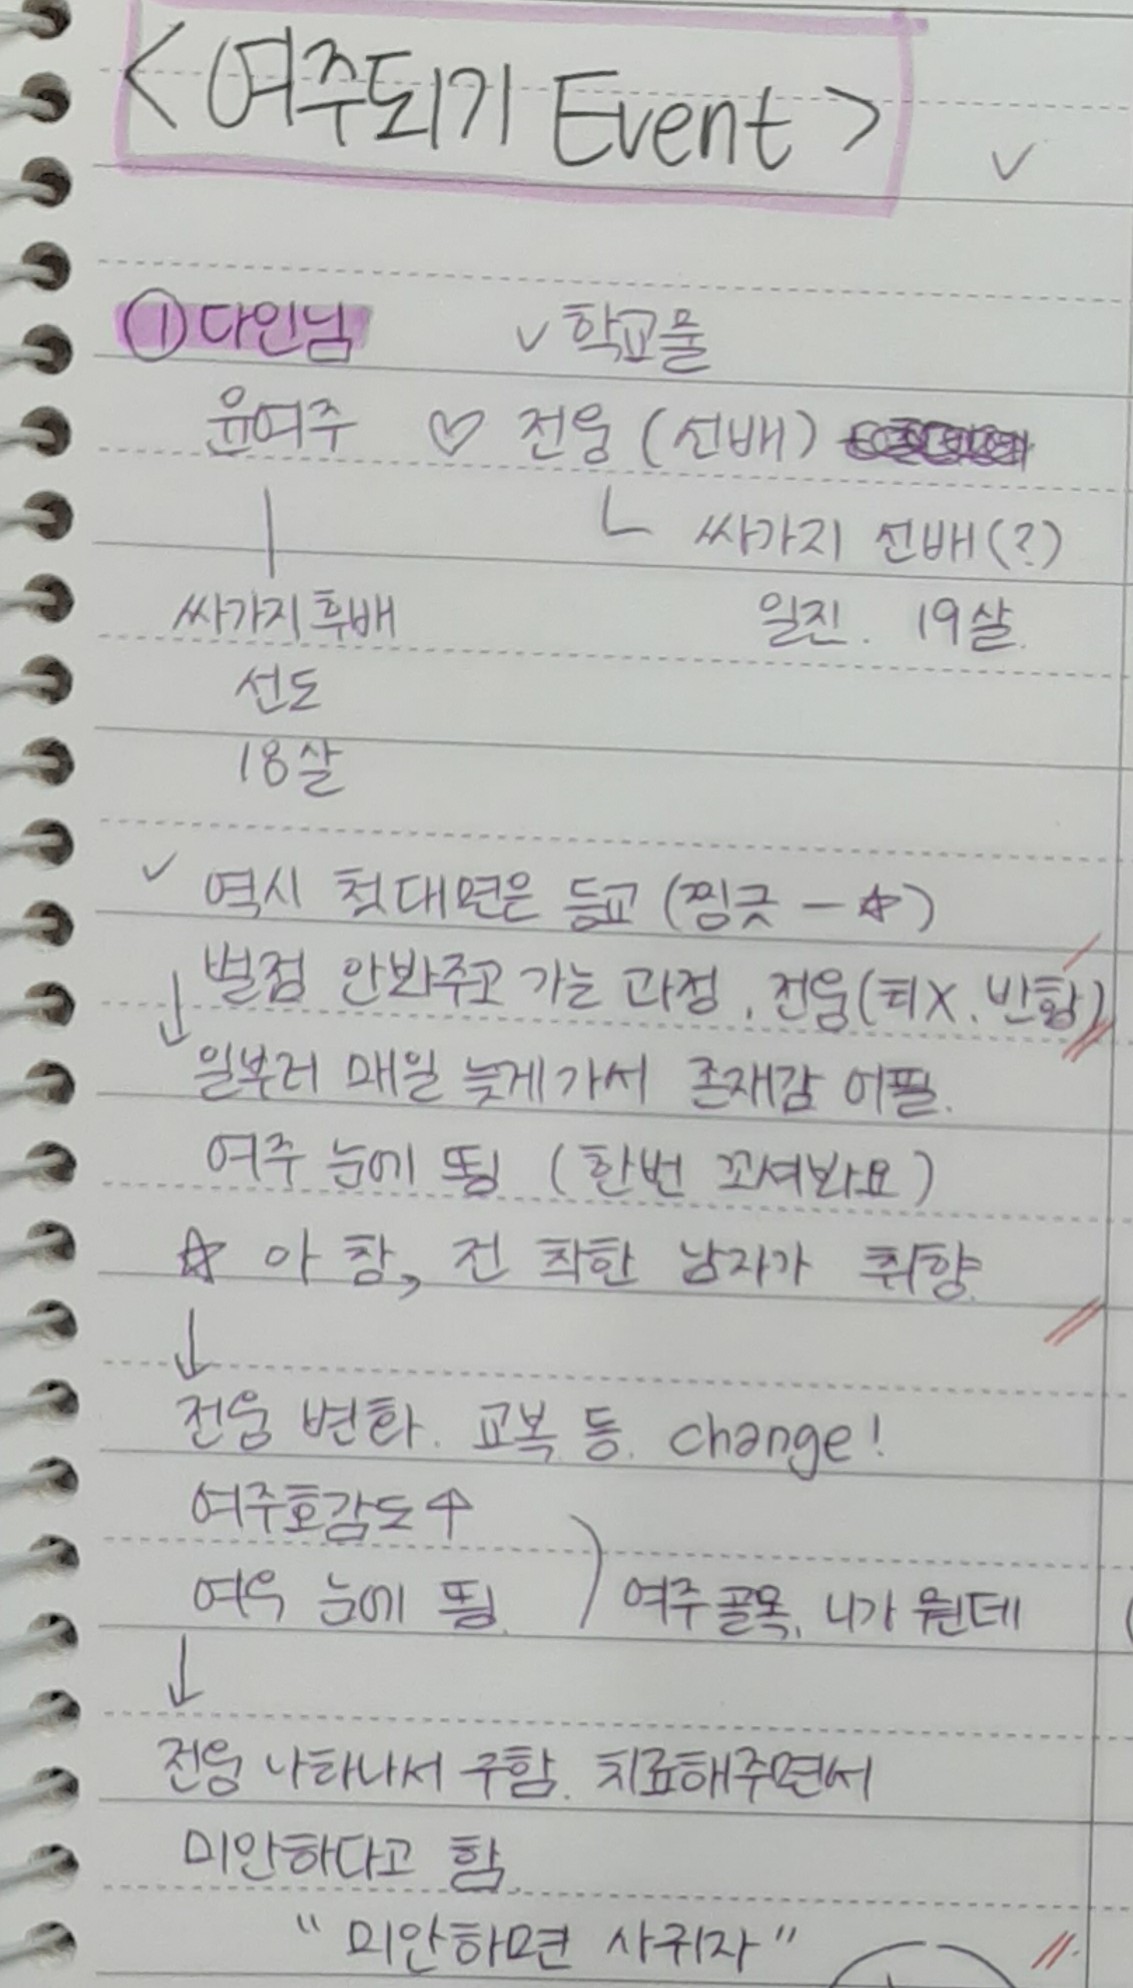 <여주되기 Event>
✓
① 다인님 ✓ 학교물
윤여주 ♡ 전웅 (선배)
ㄴ 싸가지 선배(?)
싸가지후배 일진. 19살.
선도
18살
✓ 역시 첫대면은 등교 (찡긋 - ☆)
벌점 안봐주고 가는 과정. 전웅(티X. 반함)
↓
일부러 매일 늦게가서 존재감 어필.
여주 눈에 띔 (한번 꼬셔봐요)
☆ 아 참, 전 착한 남자가 취향.
↓
전웅 변화. 교복 등. change!
여주호감도↑
여우 눈에 띔. ) 여주골목. 니가 뭔데
↓
전웅 나타나서 구함. 치료해주면서
미안하다고 함.
"미안하면 사귀자"